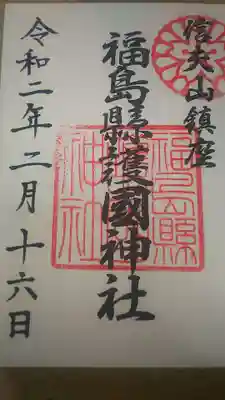 信夫山鎮座
福島縣護國神社
令和二年二月十六日
福島縣護國神社